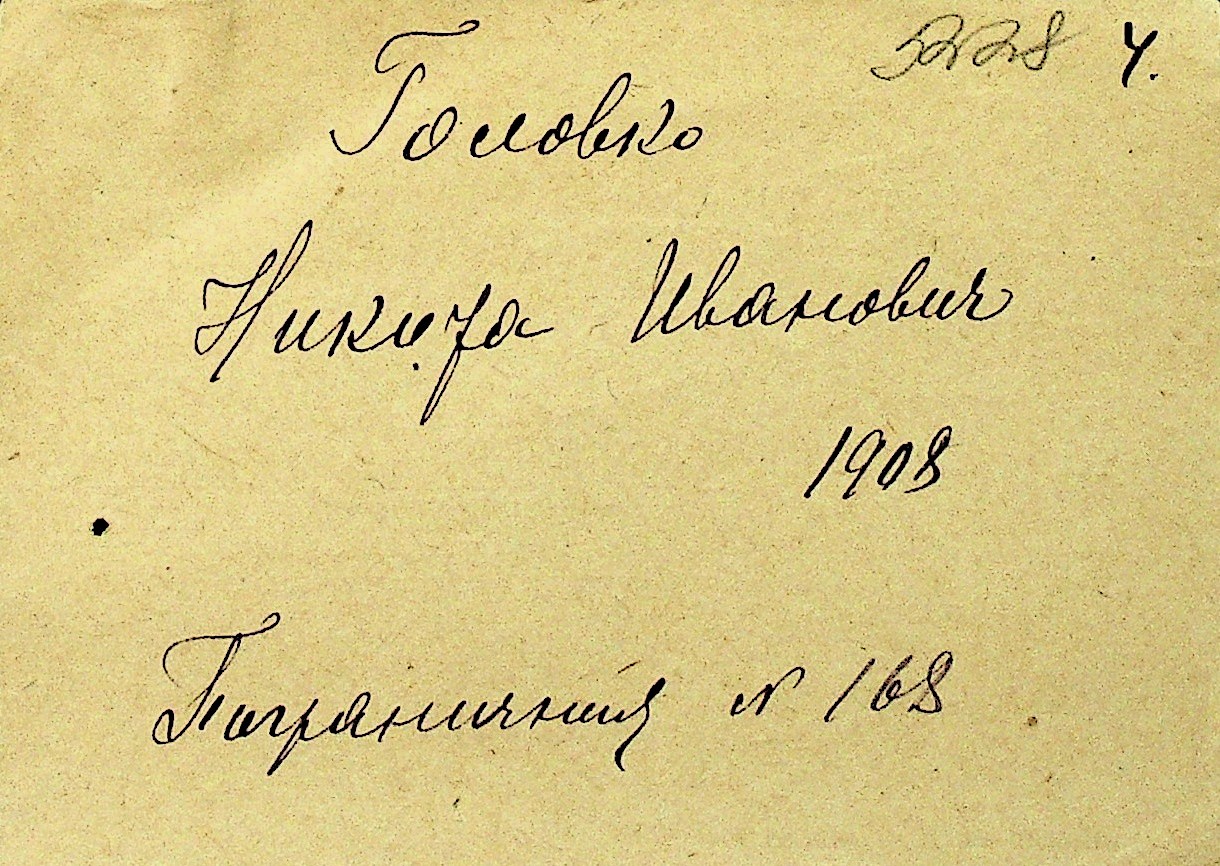 5228 4.
Головко
Никита Иванович
1908
Пограничная N 168